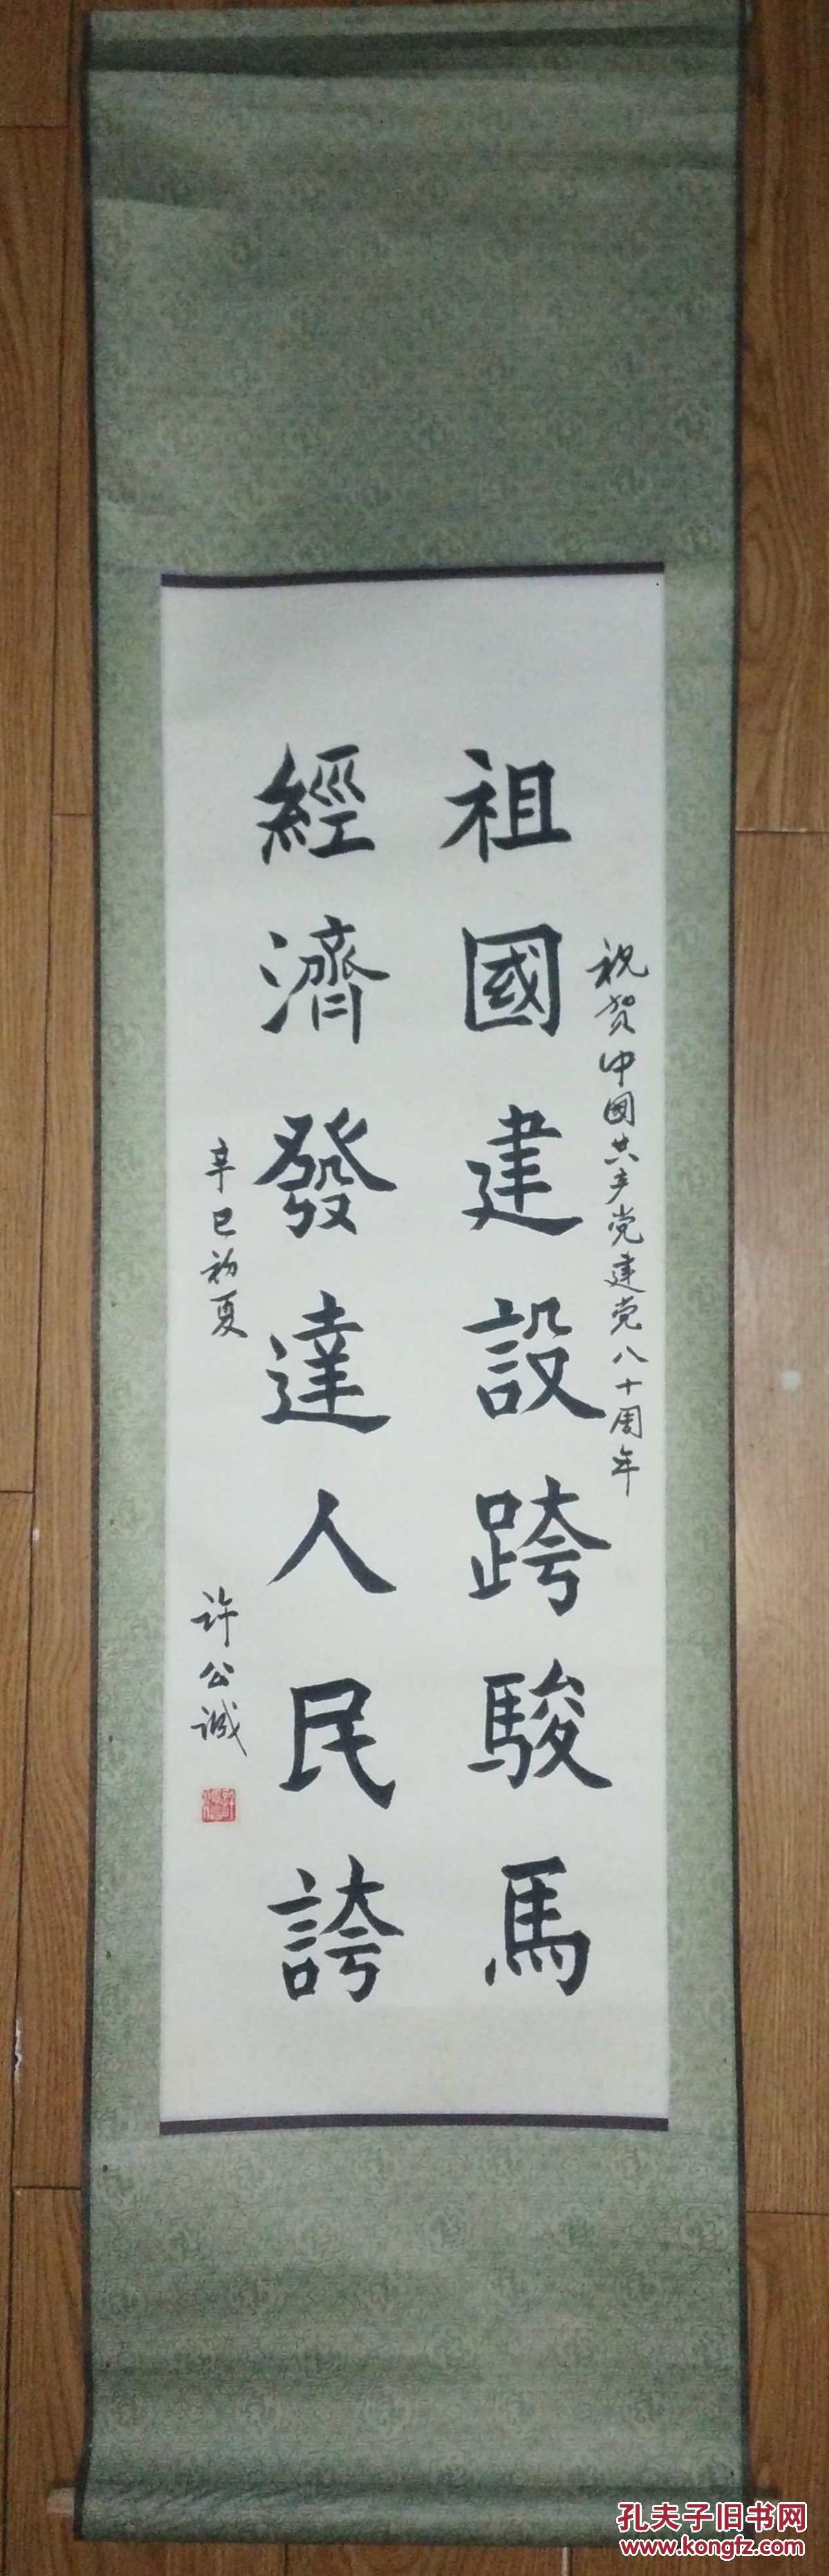 祝贺中國共产党建党八十周年
祖國建設跨駿馬
經濟發達人民誇
辛巳初夏
许公诚
孔夫子旧书网
www.kongfz.com